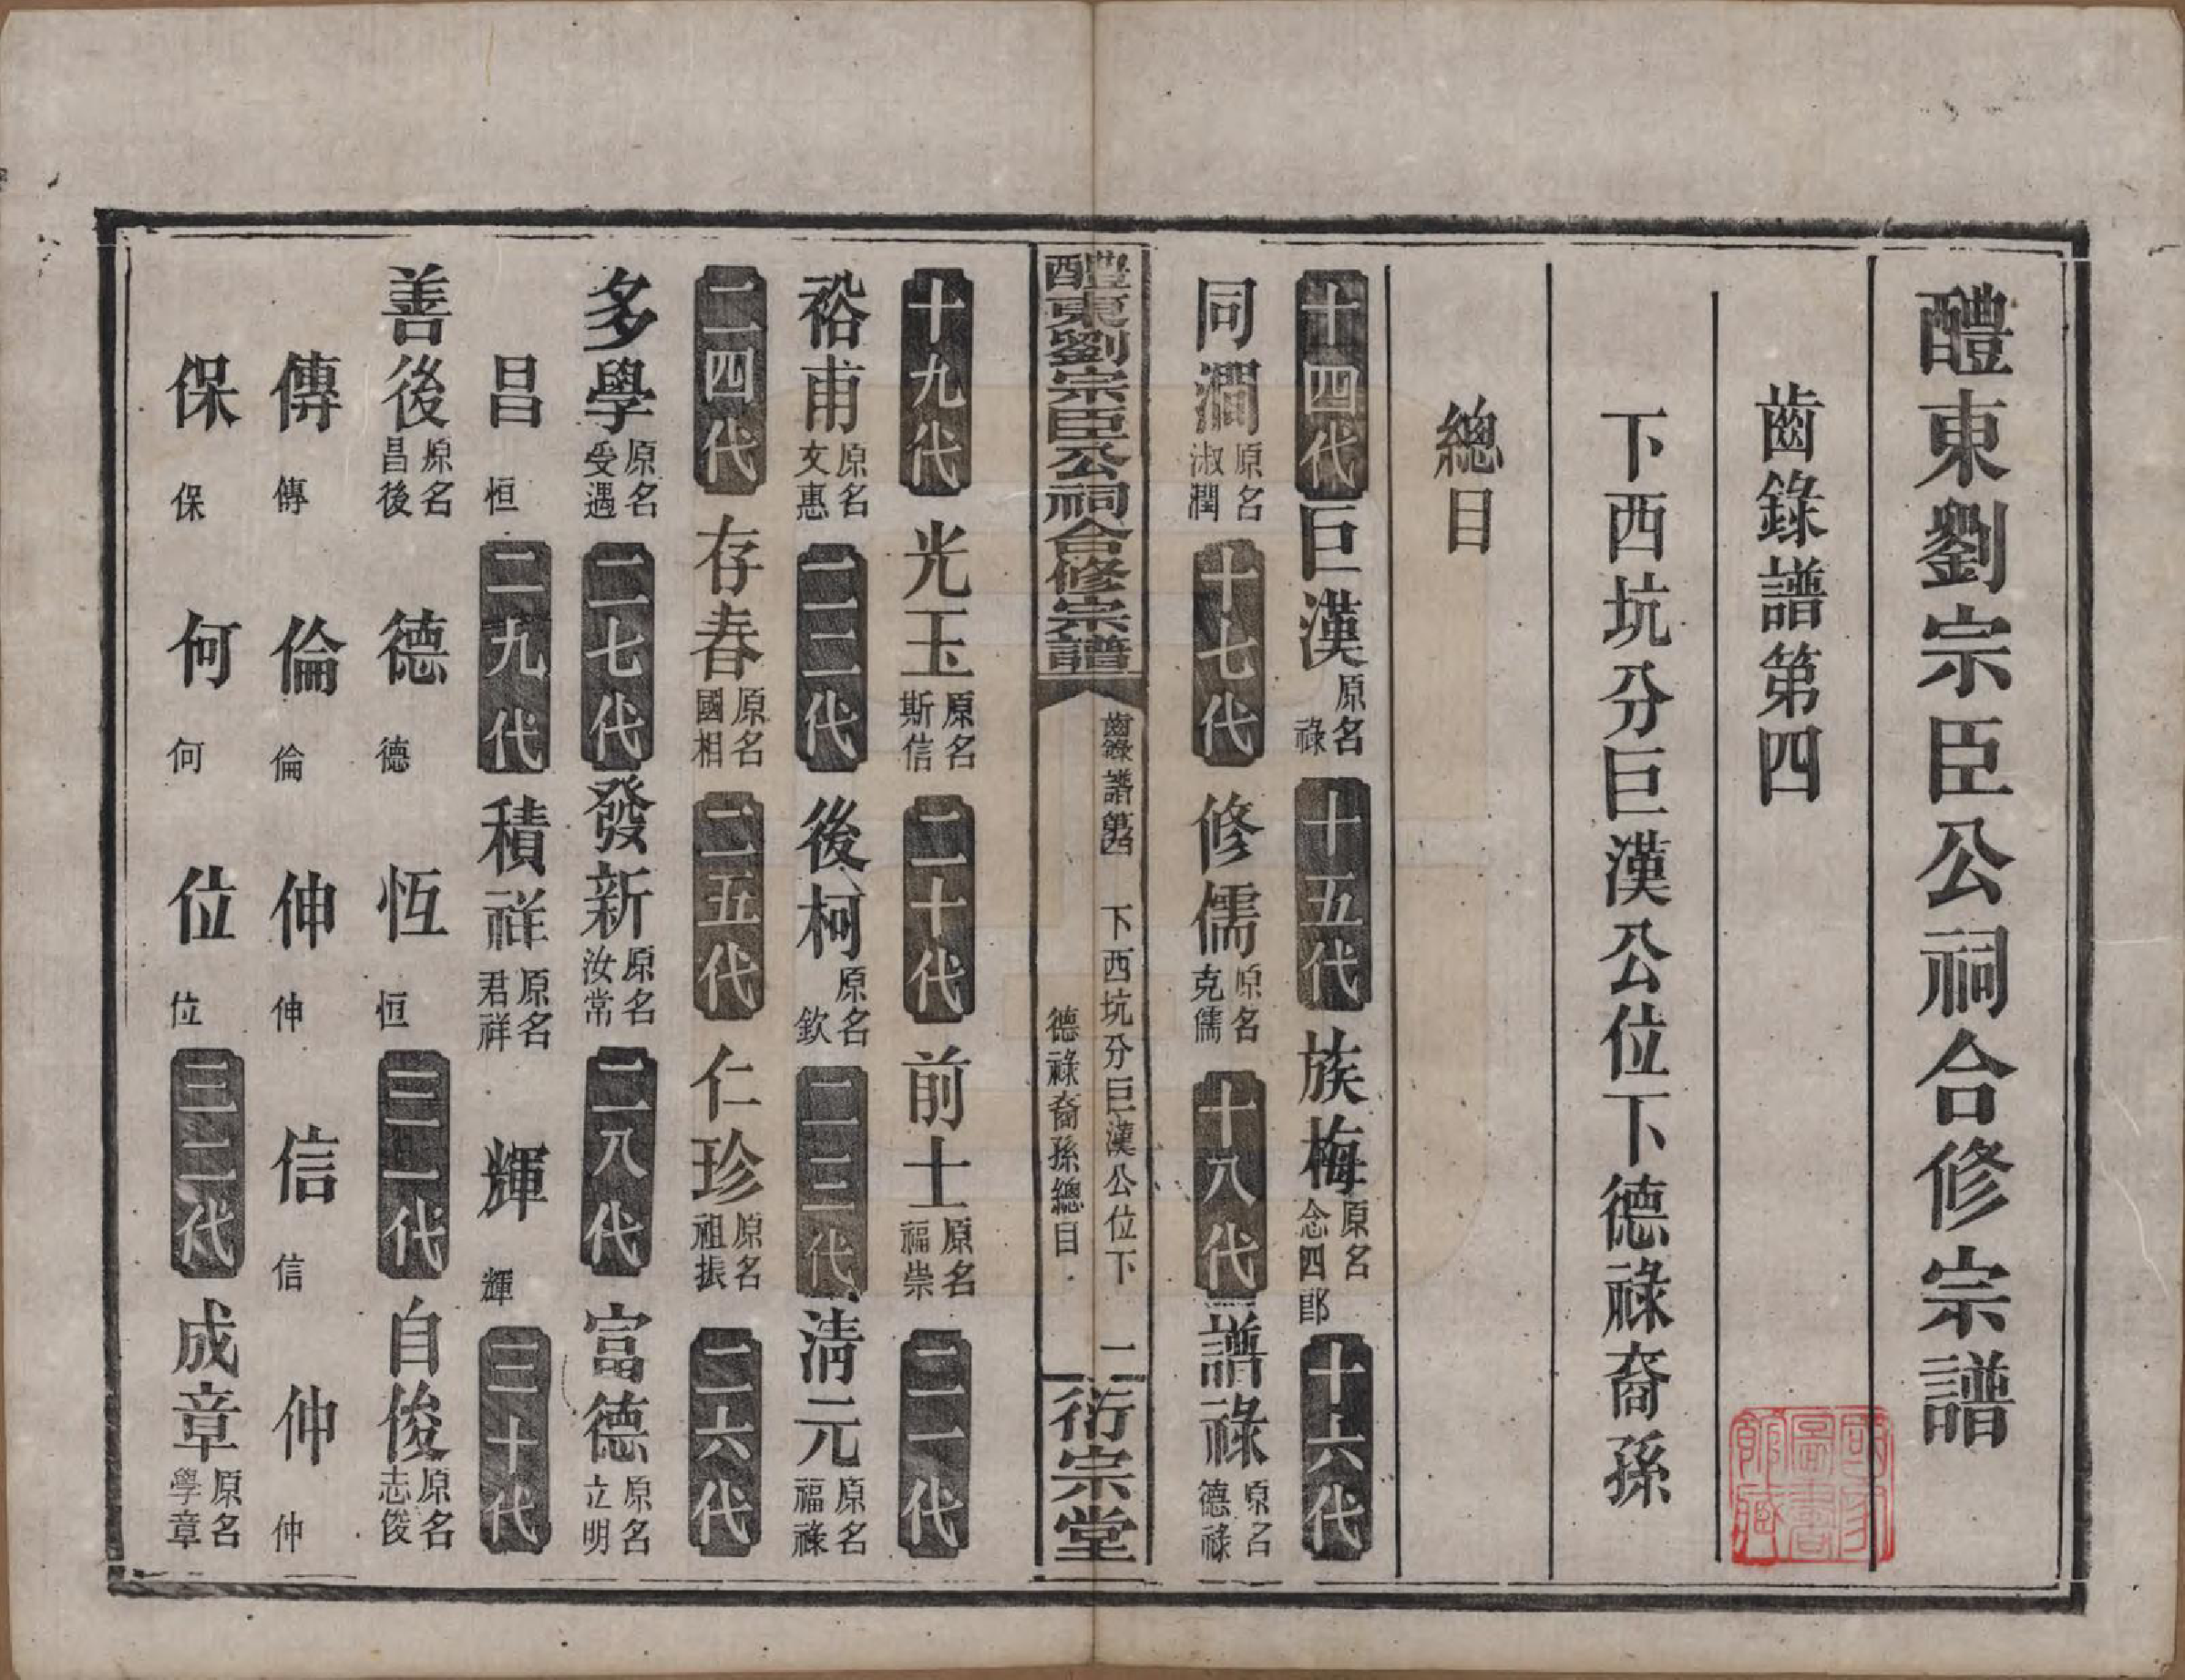 醴東劉宗臣公祠合修宗譜
齒錄譜第四
下西坑分巨漢公位下德祿裔孫
總目
十四代 巨漢 原名祿 十五代 族梅 原名念四郎 十六代
同澗 原名淑潤 十七代 修儒 原名克儒 十八代 譜祿 原名德祿
醴東劉宗臣公祠合修宗譜 齒錄譜第四 下西坑分巨漢公位下德祿裔孫總目 二 衍宗堂
十九代 光玉 原名斯信 二十代 前士 原名福崇 二一代
裕甫 原名文惠 二二代 後柯 原名欽 二三代 清元 原名福祿
二四代 存春 原名國相 二五代 仁珍 原名祖振 二六代
多學 原名受遇 二七代 發新 原名汝常 二八代 富德 原名立明
昌恒 二九代 積祥 原名君祥 輝輝 三十代
善後 原名昌後 德德 恆恒 三一代 自俊 原名志俊
傳傳 倫倫 伸伸 信信 仲仲
保保 何何 位位 三二代 成章 原名學章
國家圖書館藏